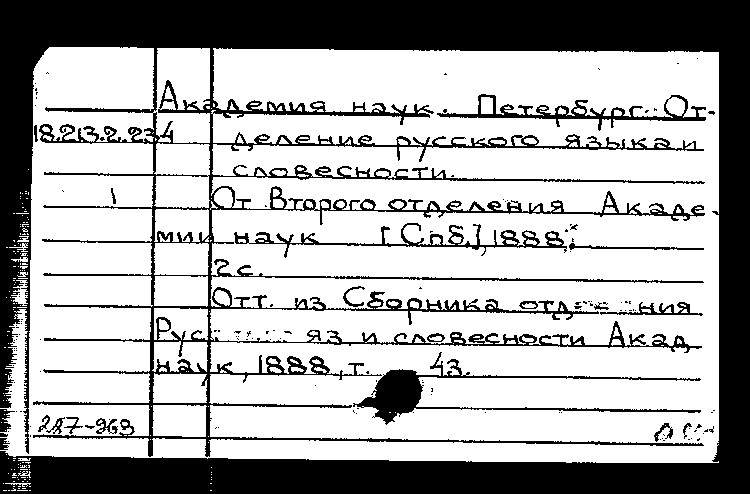 Академия наук. Петербург. От-
18.213.2.234 деление русского языка и
словесности.
1 От Второго отделения Акаде-
мии наук [Спб.], 1888.
2 с.
Отт. из Сборника
яз и словесности Акад
наук, 1888, т. 43.
287-963